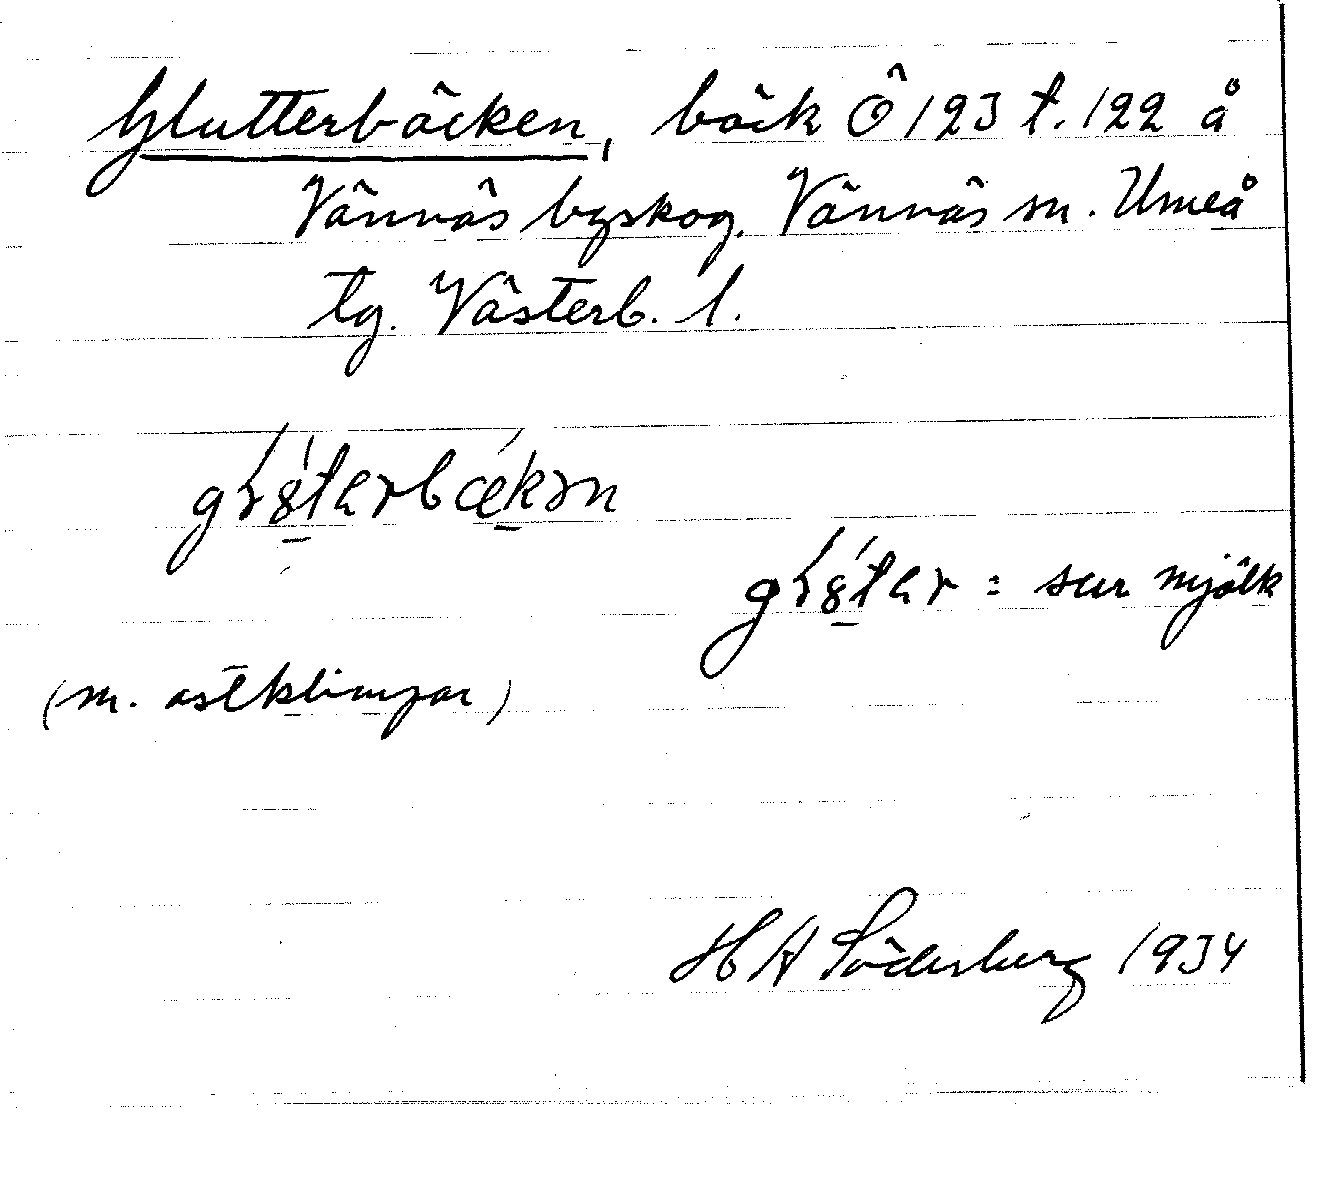 Glutterbäcken, bäck Ö 123 t. 122 å
Vännäs byskog. Vännäs sn. Umeå
tg. Västerb. l.
= sur mjölk
(m. ostklimpar)
H A Söderberg 1934